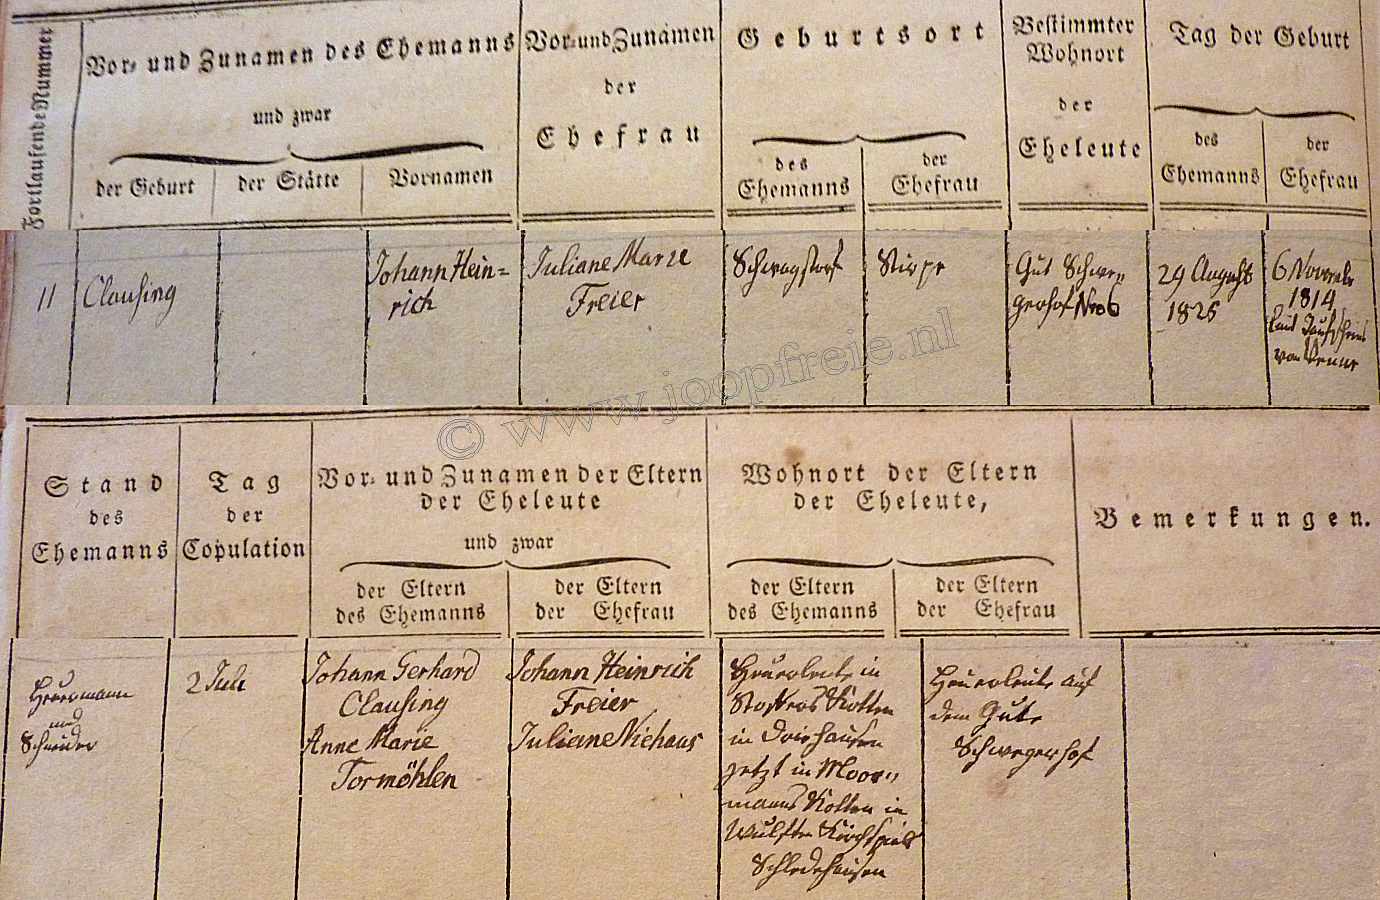 Fortlaufende Nummer
Vor- und Zunamen des Ehemanns
und zwar
der Geburt
der Stätte
Vornamen
Vor- und Zunamen
der
Ehefrau
Geburtsort
des
Ehemanns
der
Ehefrau
Bestimmter
Wohnort
der
Eheleute
Tag der Geburt
des
Ehemanns
der
Ehefrau
11
Clausing
Johann Hein=
rich
Juliane Marie
Freier
Schwagstorf
Stirpe
Gut Schwe-
gerhof Nro 6
29 August
1825
6 Novembr
1814
laut Taufschein
von Venne
© www.joopfreie.nl
Stand
des
Ehemanns
Tag
der
Copulation
Vor- und Zunamen der Eltern
der Eheleute
und zwar
der Eltern
des Ehemanns
der Eltern
der Ehefrau
Wohnort der Eltern
der Eheleute,
der Eltern
des Ehemanns
der Eltern
der Ehefrau
Bemerkungen.
Heuermann
und
Schneider
2 Juli
Johann Gerhard
Clausing
Anne Marie
Tormöhlen
Johann Heinrich
Freier
Juliane Niehaus
Heuerleute in
Kotten
in
jetzt in Moor-
manns Kotten in
Wulften Kirchspiels
Schledehausen
Heuerleute auf
dem Gute
Schwegerhof